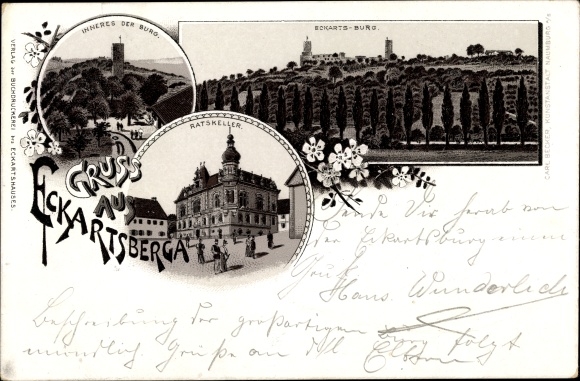 INNERES DER BURG.
ECKARTS-BURG.
RATSKELLER.
GRUSS
AUS
ECKARTSBERGA
VERLAG DER BUCHDRUCKEREI DES ECKARTSHAUSES.
CARL BECKER, KUNSTANSTALT NAUMBURG a/S
Sende Dir herab von
der Eckartsburg einen
Gruß
Hans Wunderlich
Beschreibung der großartigen Burg folgt
mündlich Grüße an die Eltern